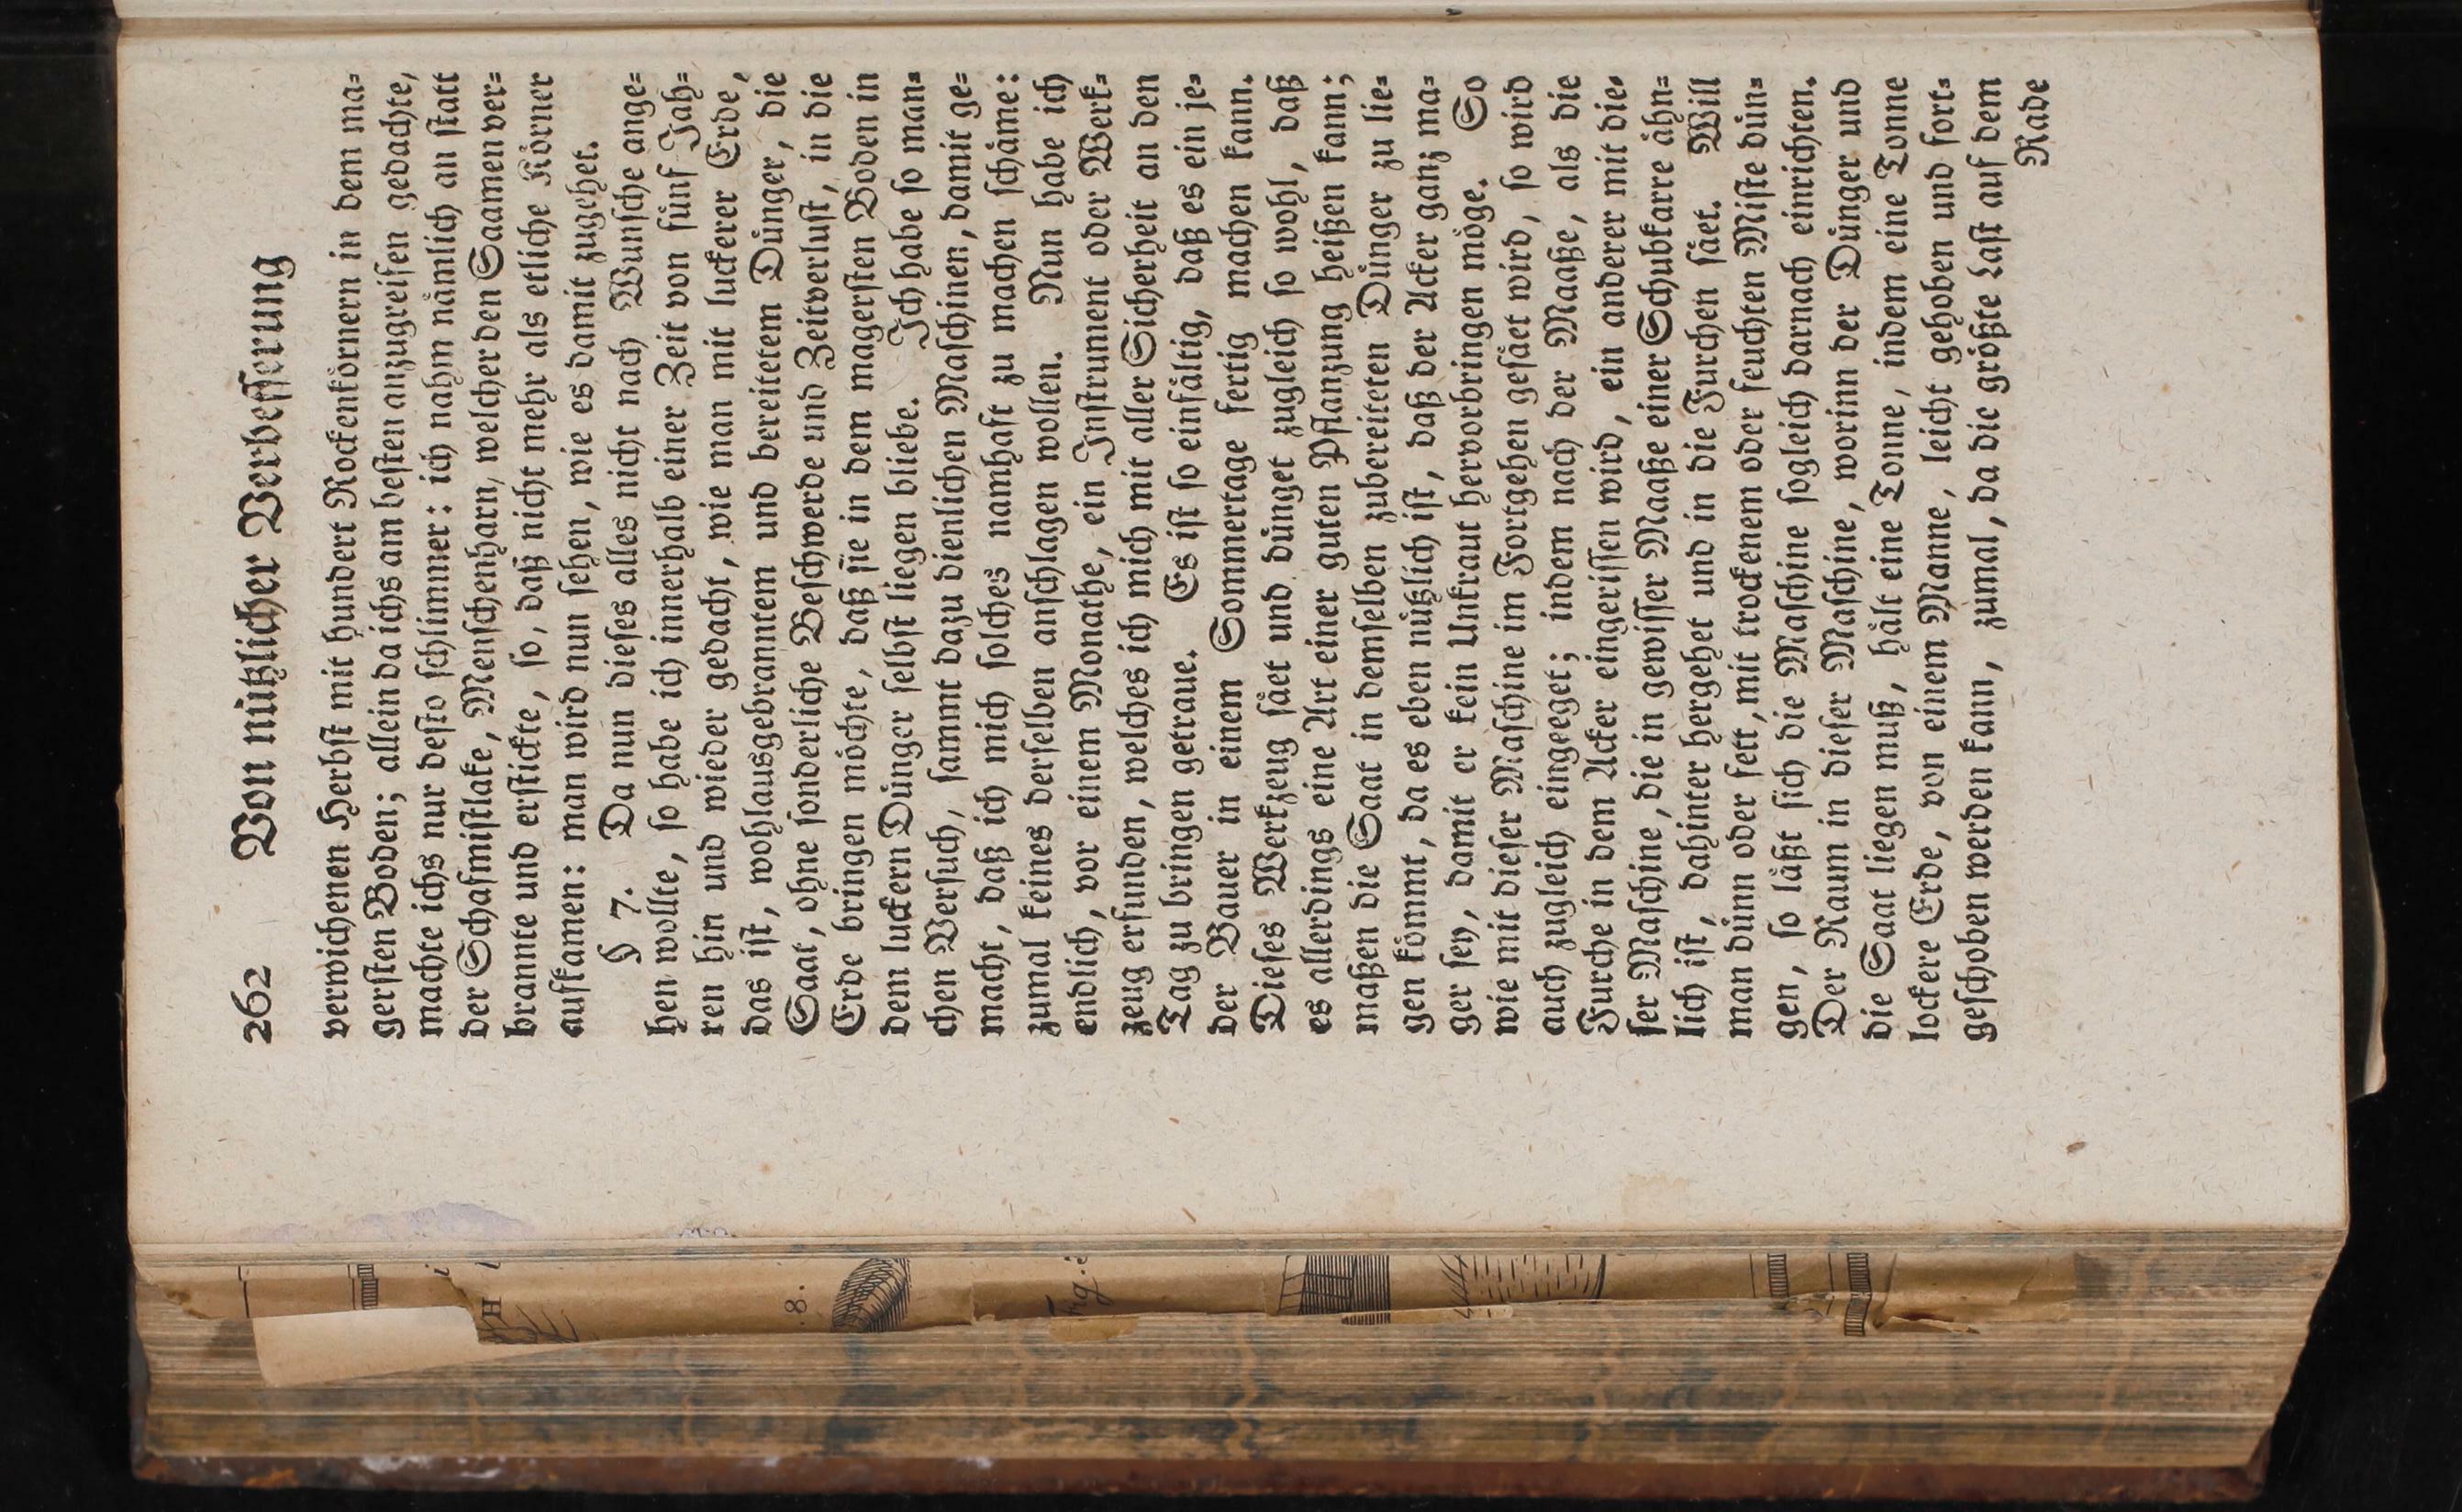 262 Von nützlicher Verbesserung
verwichenen Herbst mit hundert Rockenkörnern in dem ma-
gersten Boden; allein da ichs am besten anzugreifen gedachte,
machte ichs nur desto schlimmer: ich nahm nämlich an statt
der Schafmistlake, Menschenharn, welcher den Saamen ver-
brannte und erstickte, so, daß nicht mehr als etliche Körner
aufkamen: man wird nun sehen, wie es damit zugehet.
§ 7. Da nun dieses alles nicht nach Wunsche ange-
hen wollte, so habe ich innerhalb einer Zeit von fünf Jah-
ren hin und wieder gedacht, wie man mit luckerer Erde,
das ist, wohlausgebranntem und bereitetem Dünger, die
Saat, ohne sonderliche Beschwerde und Zeitverlust, in die
Erde bringen möchte, daß sie in dem magersten Boden in
dem luckern Dünger selbst liegen bliebe. Ich habe so man-
chen Versuch, sammt dazu dienlichen Maschinen, damit ge-
macht, daß ich mich solches namhaft zu machen schäme:
zumal keines derselben anschlagen wollen. Nun habe ich
endlich, vor einem Monathe, ein Instrument oder Werk-
zeug erfunden, welches ich mich mit aller Sicherheit an den
Tag zu bringen getraue. Es ist so einfältig, daß es ein je-
der Bauer in einem Sommertage fertig machen kann.
Dieses Werkzeug säet und dünget zugleich so wohl, daß
es allerdings eine Art einer guten Pflanzung heißen kann;
maßen die Saat in demselben zubereiteten Dünger zu lie-
gen kömmt, da es eben nützlich ist, daß der Acker ganz ma-
ger sey, damit er kein Unkraut hervorbringen möge. So
wie mit dieser Maschine im Fortgehen gesäet wird, so wird
auch zugleich eingeeget; indem nach der Maaße, als die
Furche in dem Acker eingerissen wird, ein anderer mit die-
ser Maschine, die in gewisser Maaße einer Schubkarre ähn-
lich ist, dahinter hergehet und in die Furchen säet. Will
man dünn oder fett, mit trockenem oder feuchten Miste dün-
gen, so läßt sich die Maschine sogleich darnach einrichten.
Der Raum in dieser Maschine, worinn der Dünger und
die Saat liegen muß, hält eine Tonne, indem eine Tonne
lockere Erde, von einem Manne, leicht gehoben und fort-
geschoben werden kann, zumal, da die größte Last auf dem
Rade
H
8.
Fig.